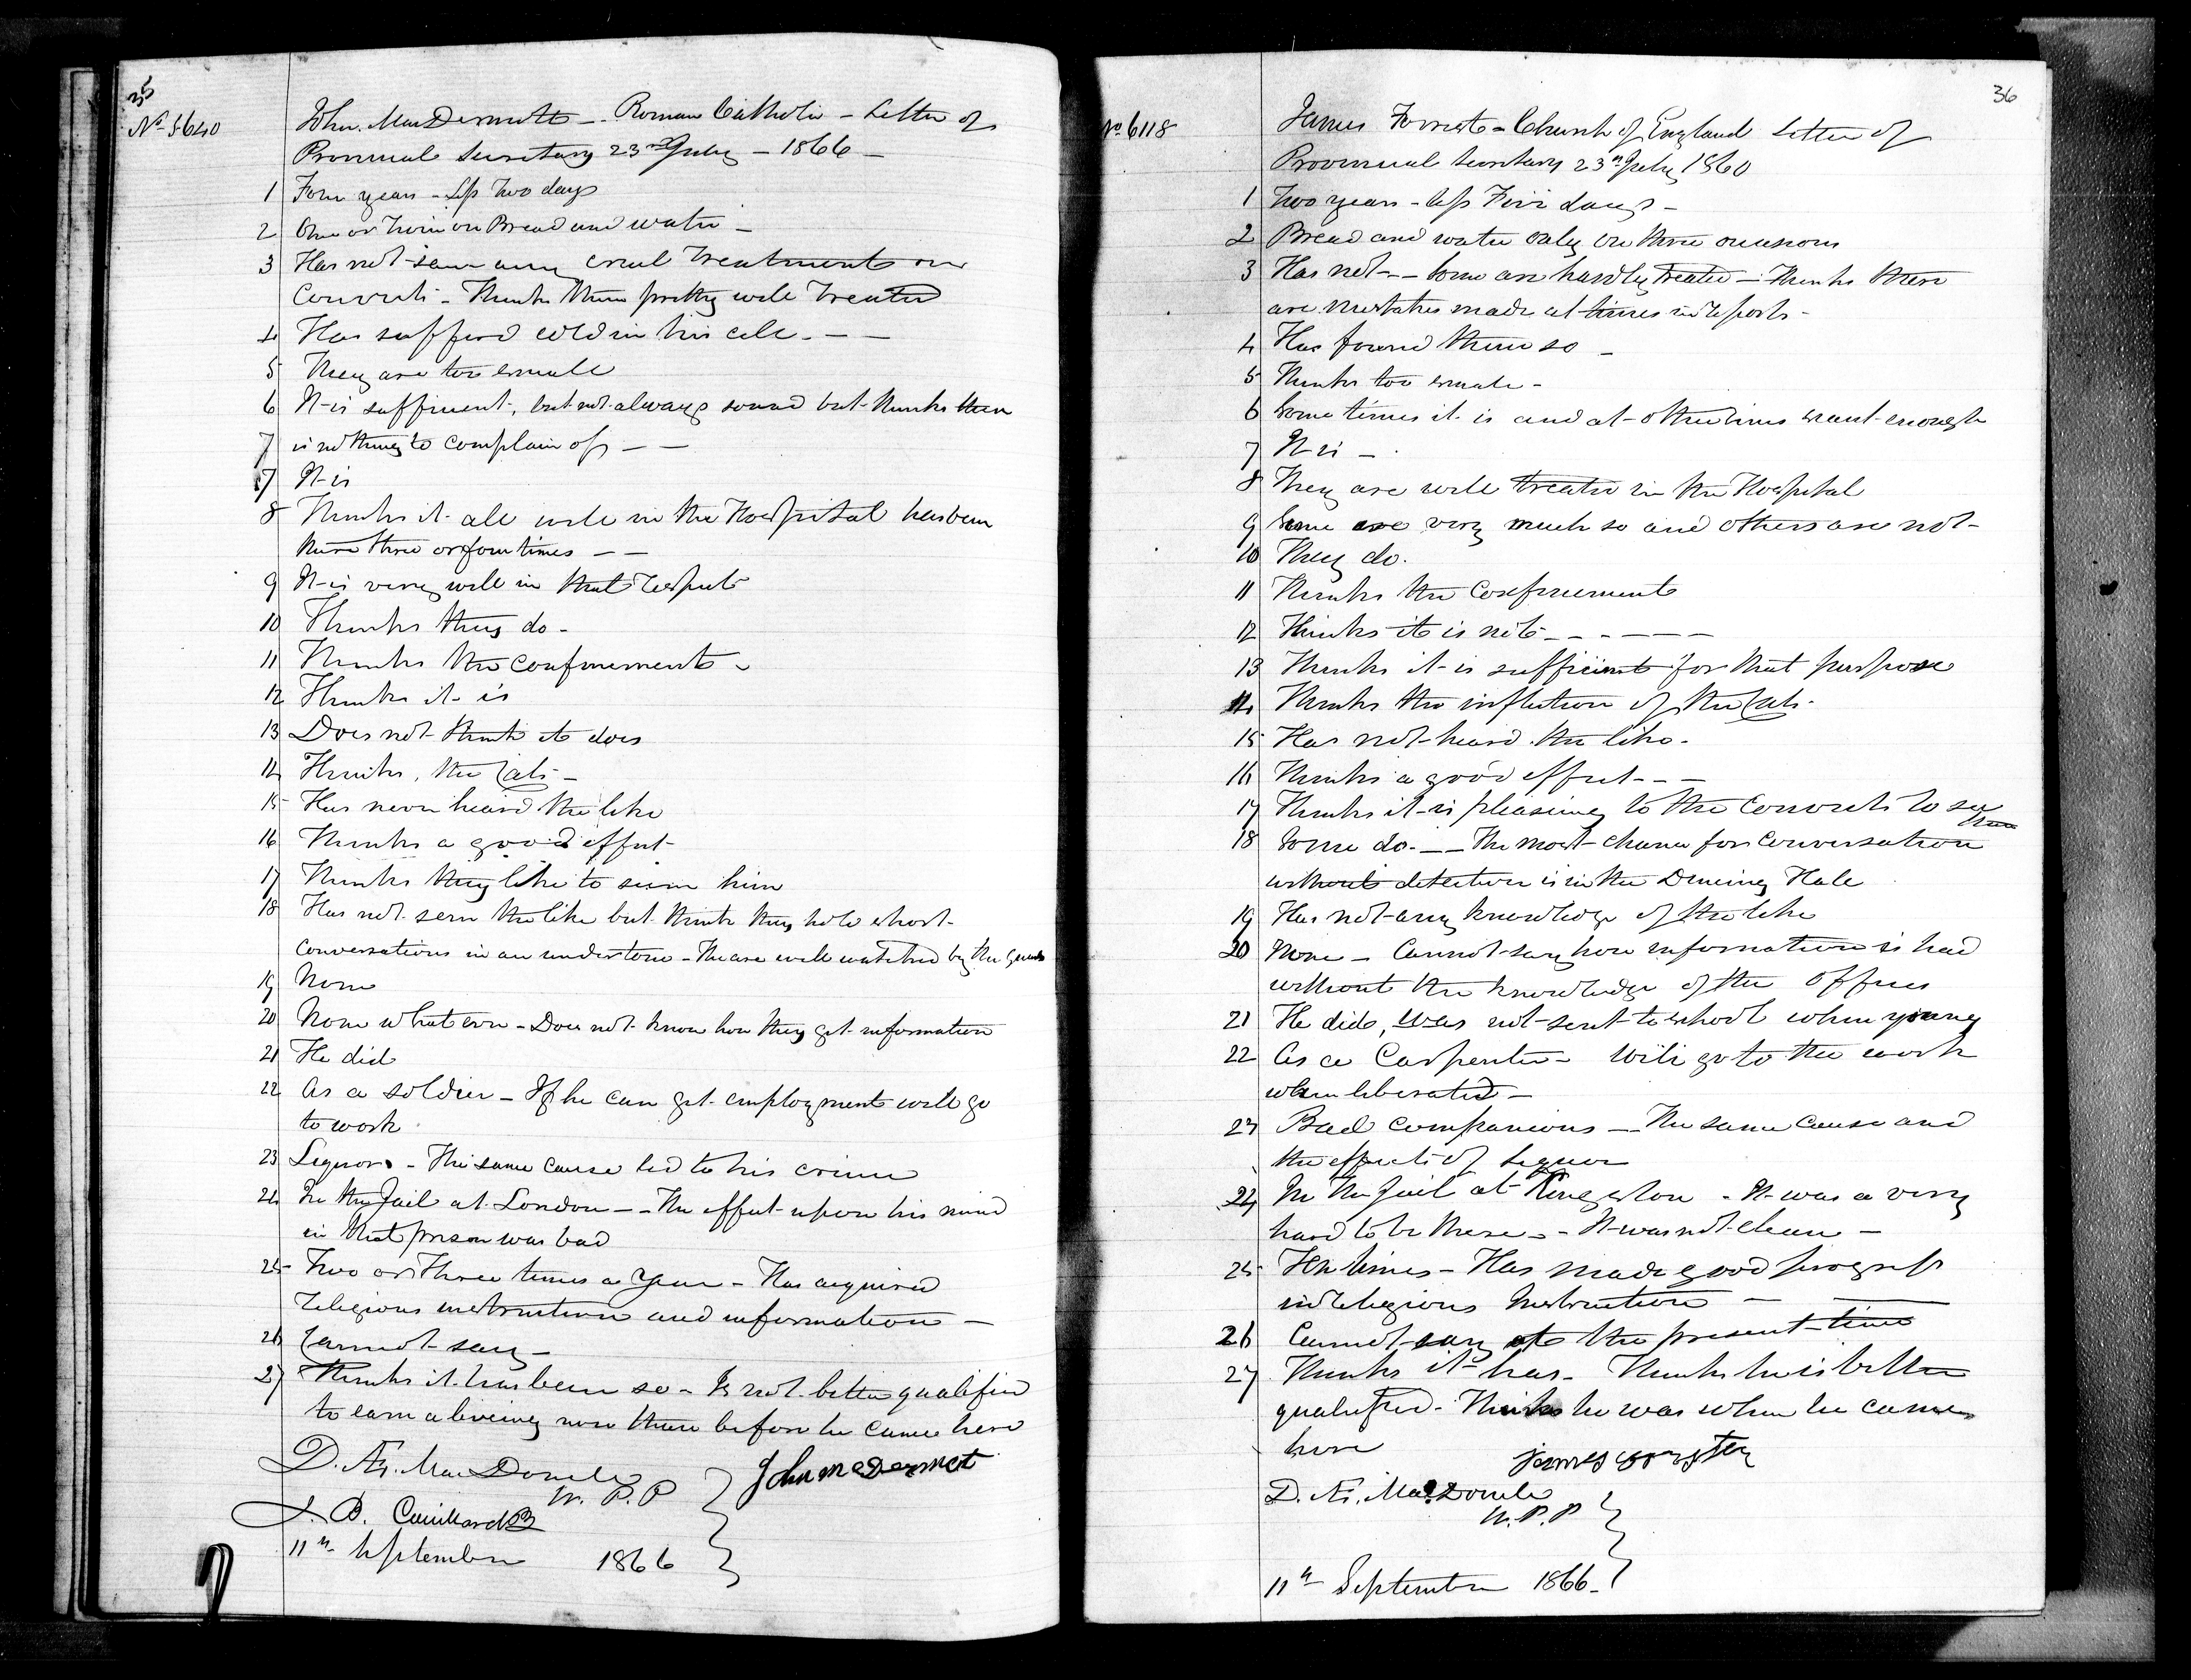 35
No 5640
John MacDermott - Roman Catholic - Letter of
Provincial Secretary 23rd July - 1866 -
1 Four years - less Two days
2 One or twice on Bread and water -
3 Has not seen any cruel treatment on
Convicts - Thinks them pretty well treated
4 Has suffered cold in his cell - -
5 They are too small
6 It is sufficient, but not always sound but thinks there
7 is nothing to complain of - -
7 It is
8 Thinks it all well in the Hospital has been
there three or four times - -
9 It is very well in that respect
10 Thinks they do -
11 Thinks the confinement -
12 Thinks it is
13 Does not think it does
14 Thinks, the Cats -
15 Has never heard the like
16 Thinks a good effect
17 Thinks they like to see him
18 Has not seen the like but thinks they hold short
conversations in an undertone - The are well watched by the guards
19 None
20 None whatever - Does not know how they get information
21 He did
22 As a soldier - If he can get employment will go
to work
23 Liquor - The same cause led to his crime
24 In the Jail at London - - The effect upon his mind
in that prison was bad
25 Two or Three times a Year - Has acquired
religious instruction and information -
26 Cannot say -
27 Thinks it has been so - Is not better qualified
to earn a living now than before he came here
D. Æ. MacDonell
W. P. P
John mcDermot
J. B.
11th September 1866
36
No 6118
James Forrest - Church of England Letter of
Provincial Secretary 23rd July 1860
1 Two years - less Five days -
2 Bread and water only on three occasions
3 Has not - - Some are hardly treated - Thinks there
are mistakes made at times in reports -
4 Has found them so -
5 Thinks too small -
6 Some times it is and at other times want enough
7 It is -
8 They are well treated in the Hospital
9 Some are very much so and others are not -
10 They do.
11 Thinks the Confinement
12 Thinks it is not - - - - - -
13 Thinks it is sufficient for that purpose
14 Thinks the infliction of the Cats -
15 Has not heard the like -
16 Thinks a good effect - - -
17 Thinks it is pleasing to the Convicts to see
them
18 Some do - - - The most chance for conversation
without detection is in the Dineing Hall
19 Has not any knowledge of the like
20 None - Cannot say how information is had
without the knowledge of the Officers
21 He did, was not sent to school when young
22 As a Carpenter - Will go to the work
when liberated -
23 Bad companions - The same cause and
the effects of Liquor
24 In The Jail at Kingston - It was a very
hard to be there - - It was not clean -
25 Ten times - Has made good progress
in religious Instruction - -
26 Cannot say at the present time
27 Thinks it has - Thinks he is better
qualified - Thinks he was when he came
here
James
D. Æ. MacDonell
W. P. P
11th September 1866 -